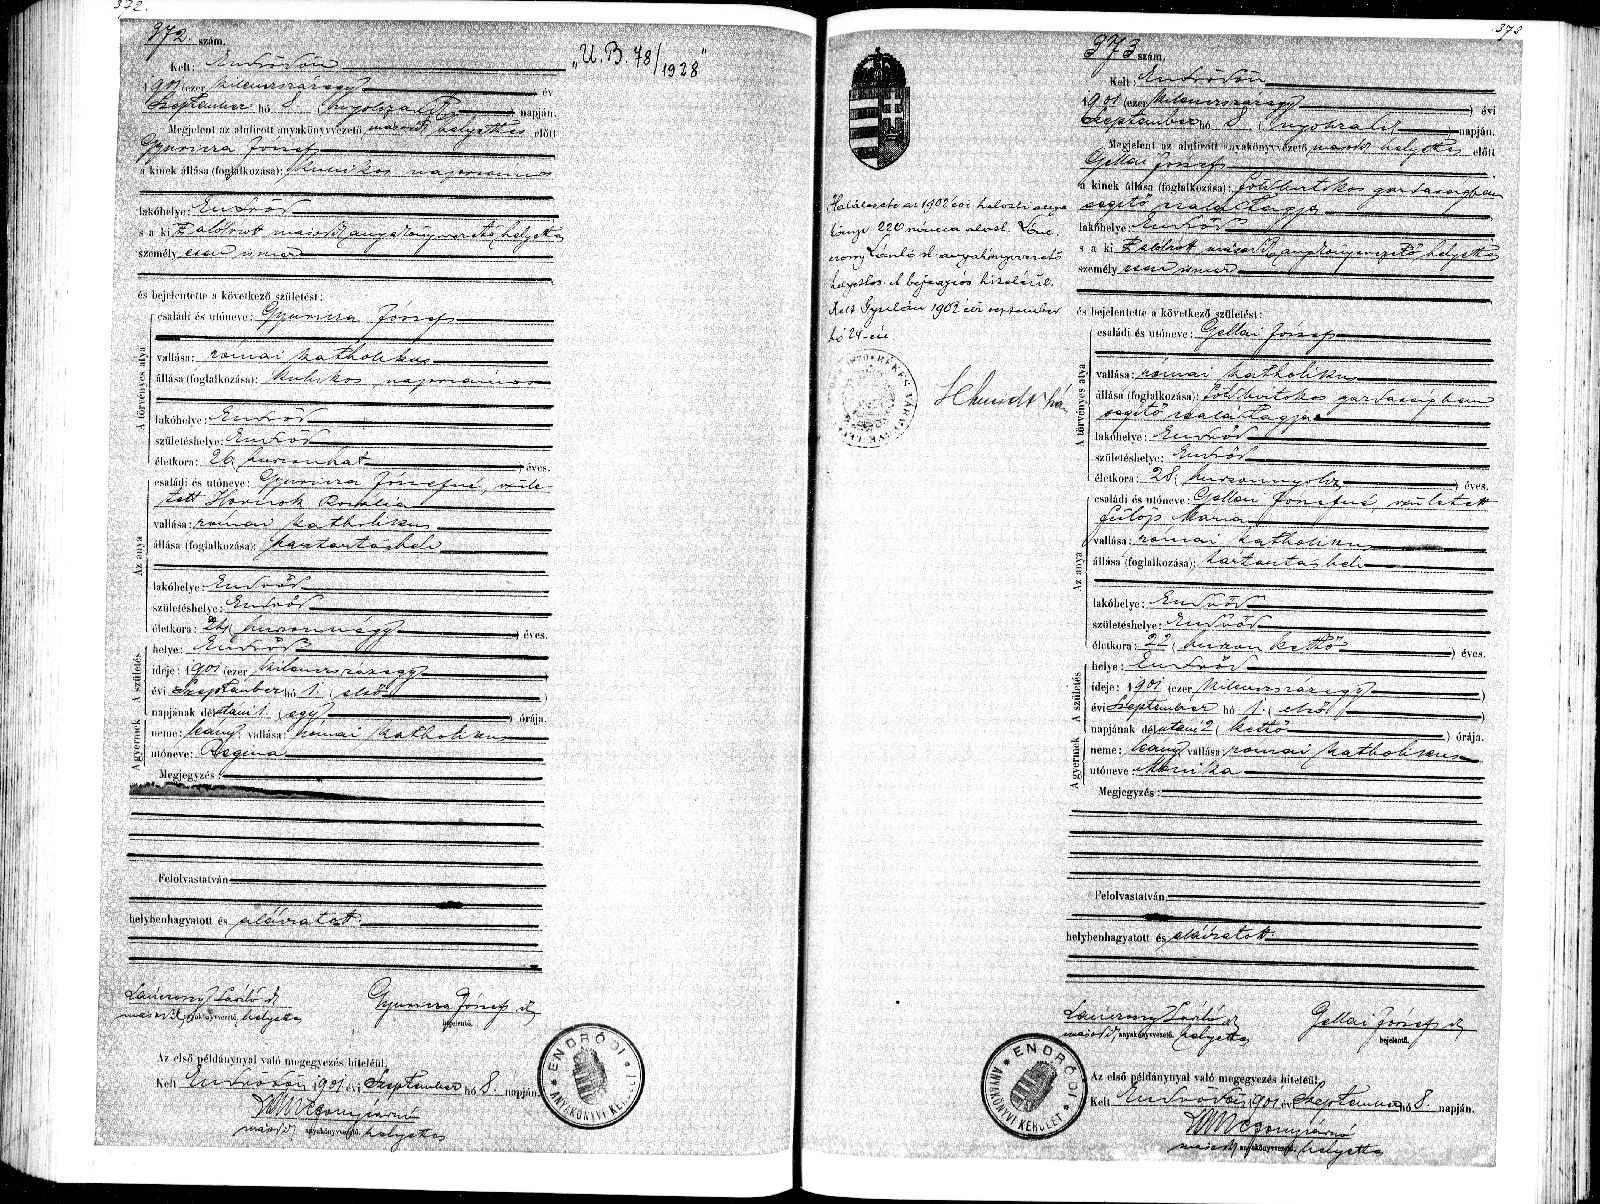 372.
372 szám.
Kelt: Endrődön
1901 (ezer kilencszázegy) év
Szeptember hó 8 (nyolczadik) napján.
Megjelent az alulirott anyakönyvvezető másod helyettes előtt
Gyuricza József
a kinek állása (foglalkozása): kubikos napszámos
lakóhelye: Endrőd
s a kit alólirott másod anyakönyvvezető helyettes
személyesen ismer
és bejelentette a következő születést:
A törvényes atya
családi és utóneve: Gyuricza József
vallása: római katholikus
állása (foglalkozása): kubikos, napszámos
lakóhelye: Endrőd
születéshelye: Endrőd
életkora: 26 (huszonhat) éves.
Az anya
családi és utóneve: Gyuricza Józsefné, szüle-
tett Hornok Rozália
vallása: római katholikus
állása (foglalkozása): háztartásbeli
lakóhelye: Endrőd
születéshelye: Endrőd
életkora: 24 (huszonnégy) éves.
A születés
helye: Endrőd
ideje: 1901 (ezer kilencszázegy)
évi Szeptember hó 1. (első)
napjának délutáni 1. (egy) órája.
A gyermek
neme: leány, vallása: római katholikus
utóneve: Regina
Megjegyzés:
Felolvastatván
helybenhagyatott és aláiratott.
Lánczony László
másod anyakönyvvezető. helyettes
Gyuricza József
bejelentő.
Az első példánynyal való megegyezés hiteléül.
Kelt Endrődön, 1901 évi Szeptember hó 8. napján.
másod anyakönyvvezető. helyettes
ENDRŐDI ANYAKÖNYVI KERÜLET
„U.B 78/1928"
373
373 szám.
Kelt: Endrődön
1901 (ezer kilencszázegy) évi
Szeptember hó 8 (nyolczadik) napján.
Megjelent az alulirott anyakönyvvezető másod helyettes előtt
Gellai József
a kinek állása (foglalkozása): földbirtokos gazdaságban
segítő családtagja
lakóhelye: Endrőd
s a kit alólirott másod anyakönyvvezető helyettes
személyesen ismer
és bejelentette a következő születést:
A törvényes atya
családi és utóneve: Gellai József
vallása: római katholikus
állása (foglalkozása): földbirtokos gazdaságban
segítő családtagja
lakóhelye: Endrőd
születéshelye: Endrőd
életkora: 28 (huszonnyolcz) éves.
Az anya
családi és utóneve: Gellai Józsefné, született
Fülöp Mária
vallása: római katholikus
állása (foglalkozása): háztartásbeli
lakóhelye: Endrőd
születéshelye: Endrőd
életkora: 22 (huszonkettő) éves.
A születés
helye: Endrőd
ideje: 1901 (ezer kilencszázegy)
évi Szeptember hó 1. (első)
napjának délutáni 2 (kettő) órája.
A gyermek
neme: leány vallása: római katholikus
utóneve: Mónika
Megjegyzés:
Felolvastatván
helybenhagyatott és aláiratott.
Lánczony László
másod anyakönyvvezető. helyettes
Gellai József
bejelentő.
Az első példánynyal való megegyezés hiteléül.
Kelt Endrődön, 1901 évi Szeptember hó 8. napján.
másod anyakönyvvezető. helyettes
ENDRŐDI ANYAKÖNYVI KERÜLET
Halálesete az 1902 évi halotti anya
könyv 220 száma alatt. Lánc-
zony László anyakönyvvezető
helyettes. A bejegyzés hiteléül.
Kelt Gyulán 1902 évi szeptember
hó 24-én